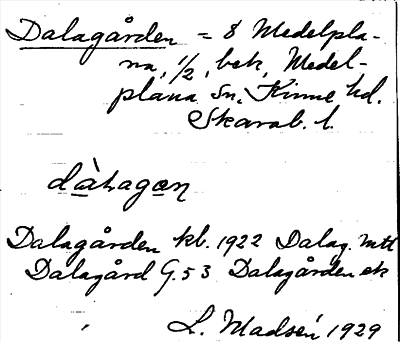 Dalagården = 8 Medelpla-
na, 1/2, bek, Medel-
plana Sn. Kinne hd.
Skarab. l.
dàhagan
Dalagården kb. 1922 Dalag. mtl
Dalagård G. 53 Dalagården ek
L. Madsén 1929